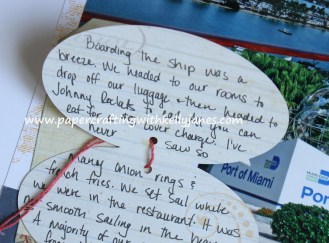 Boarding the ship was a
breeze. We headed to our rooms to
drop off our luggage & then headed to
Johnny Rockets you can
eat for cover charge. I've
never saw so
many onion rings &
french fries. We set sail while
we were in the restaurant. It was
smooth sailing in the
A majority of our
www.papercraftingwithkellyjanes.com
Port of Miami
Port of